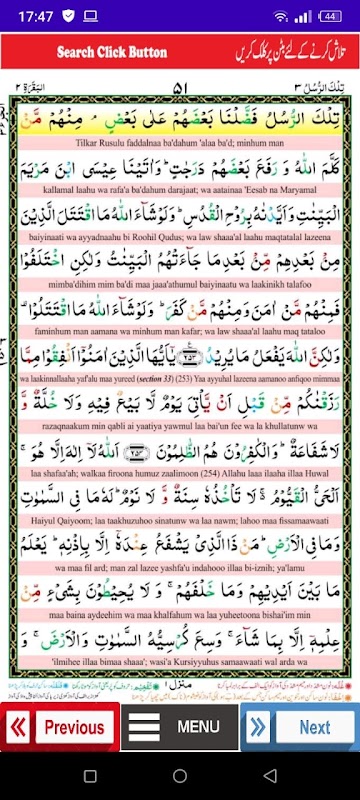 17:47
44
Search Click Button
تلاش کرنے کے لئے بٹن پر کلک کریں
تِلْكَ الرُّسُل ٣
٥١
اَلْبَقَرَة ٢
تِلْكَ الرُّسُلُ فَضَّلْنَا بَعْضَهُمْ عَلٰى بَعْضٍ ۘ مِنْهُمْ مَّنْ
Tilkar Rusulu faddalnaa ba'dahum 'alaa ba'd; minhum man
كَلَّمَ اللّٰهُ وَ رَفَعَ بَعْضَهُمْ دَرَجٰتٍ ؕ وَاٰتَيْنَا عِيْسَى ابْنَ مَرْيَمَ
kallamal laahu wa rafa'a ba'dahum darajaat; wa aatainaa 'Eesab na Maryamal
الْبَيِّنٰتِ وَاَيَّدْنٰهُ بِرُوْحِ الْقُدُسِ ؕ وَلَوْ شَآءَ اللّٰهُ مَا اقْتَتَلَ الَّذِيْنَ
baiyinaati wa ayyadnaahu bi Roohil Qudus; wa law shaaa'al laahu maqtatalal lazeena
مِنْۢ بَعْدِهِمْ مِّنْۢ بَعْدِ مَا جَآءَتْهُمُ الْبَيِّنٰتُ وَلٰكِنِ اخْتَلَفُوْا
mimba'dihim mim ba'di maa jaaa'athumul baiyinaatu wa laakinikh talafoo
فَمِنْهُمْ مَّنْ اٰمَنَ وَمِنْهُمْ مَّنْ كَفَرَ ؕ وَلَوْ شَآءَ اللّٰهُ مَا اقْتَتَلُوْا ۟
faminhum man aamana wa minhum man kafar; wa law shaaa'al laahu maq tataloo
وَلٰكِنَّ اللّٰهَ يَفْعَلُ مَا يُرِيْدُ ﴿٢٥٣﴾ يٰۤاَيُّهَا الَّذِيْنَ اٰمَنُوْۤا اَنْفِقُوْا مِمَّا
wa laakinnallaaha yaf'alu maa yureed (section 33) (253) Yaa ayyuhal lazeena aamanoo anfiqoo mimmaa
رَزَقْنٰكُمْ مِّنْ قَبْلِ اَنْ يَّاْتِيَ يَوْمٌ لَّا بَيْعٌ فِيْهِ وَلَا خُلَّةٌ وَّ
razaqnaakum min qabli ai yaatiya yawmul laa bai'un fee wa la khullatunw wa
لَا شَفَاعَةٌ ؕ وَالْكٰفِرُوْنَ هُمُ الظّٰلِمُوْنَ ﴿٢٥٤﴾ اَللّٰهُ لَاۤ اِلٰهَ اِلَّا هُوَ ۚ
laa shafaa'ah; walkaa firoona humuz zaalimoon (254) Allahu laaa ilaaha illaa Huwal
اَلْحَيُّ الْقَيُّوْمُ ۚ لَا تَاْخُذُهٗ سِنَةٌ وَّ لَا نَوْمٌ ؕ لَهٗ مَا فِي السَّمٰوٰتِ
Haiyul Qaiyoom; laa taakhuzuhoo sinatunw wa laa nawm; lahoo maa fissamaawaati
وَمَا فِي الْاَرْضِ ؕ مَنْ ذَا الَّذِيْ يَشْفَعُ عِنْدَهٗۤ اِلَّا بِاِذْنِهٖ ؕ يَعْلَمُ
wa maa fil ard; man zal lazee yashfa'u indahooo illaa bi-iznih; ya'lamu
مَا بَيْنَ اَيْدِيْهِمْ وَمَا خَلْفَهُمْ ۚ وَ لَا يُحِيْطُوْنَ بِشَيْءٍ مِّنْ
maa baina aydeehim wa maa khalfahum wa laa yuheetoona bishai'im min
عِلْمِهٖۤ اِلَّا بِمَا شَآءَ ۚ وَسِعَ كُرْسِيُّهُ السَّمٰوٰتِ وَالْاَرْضَ ۚ وَ لَا
'ilmihee illaa bimaa shaaa'; wasi'a Kursiyyuhus samaawaati wal arda wa
منزل ١
Previous
MENU
Next